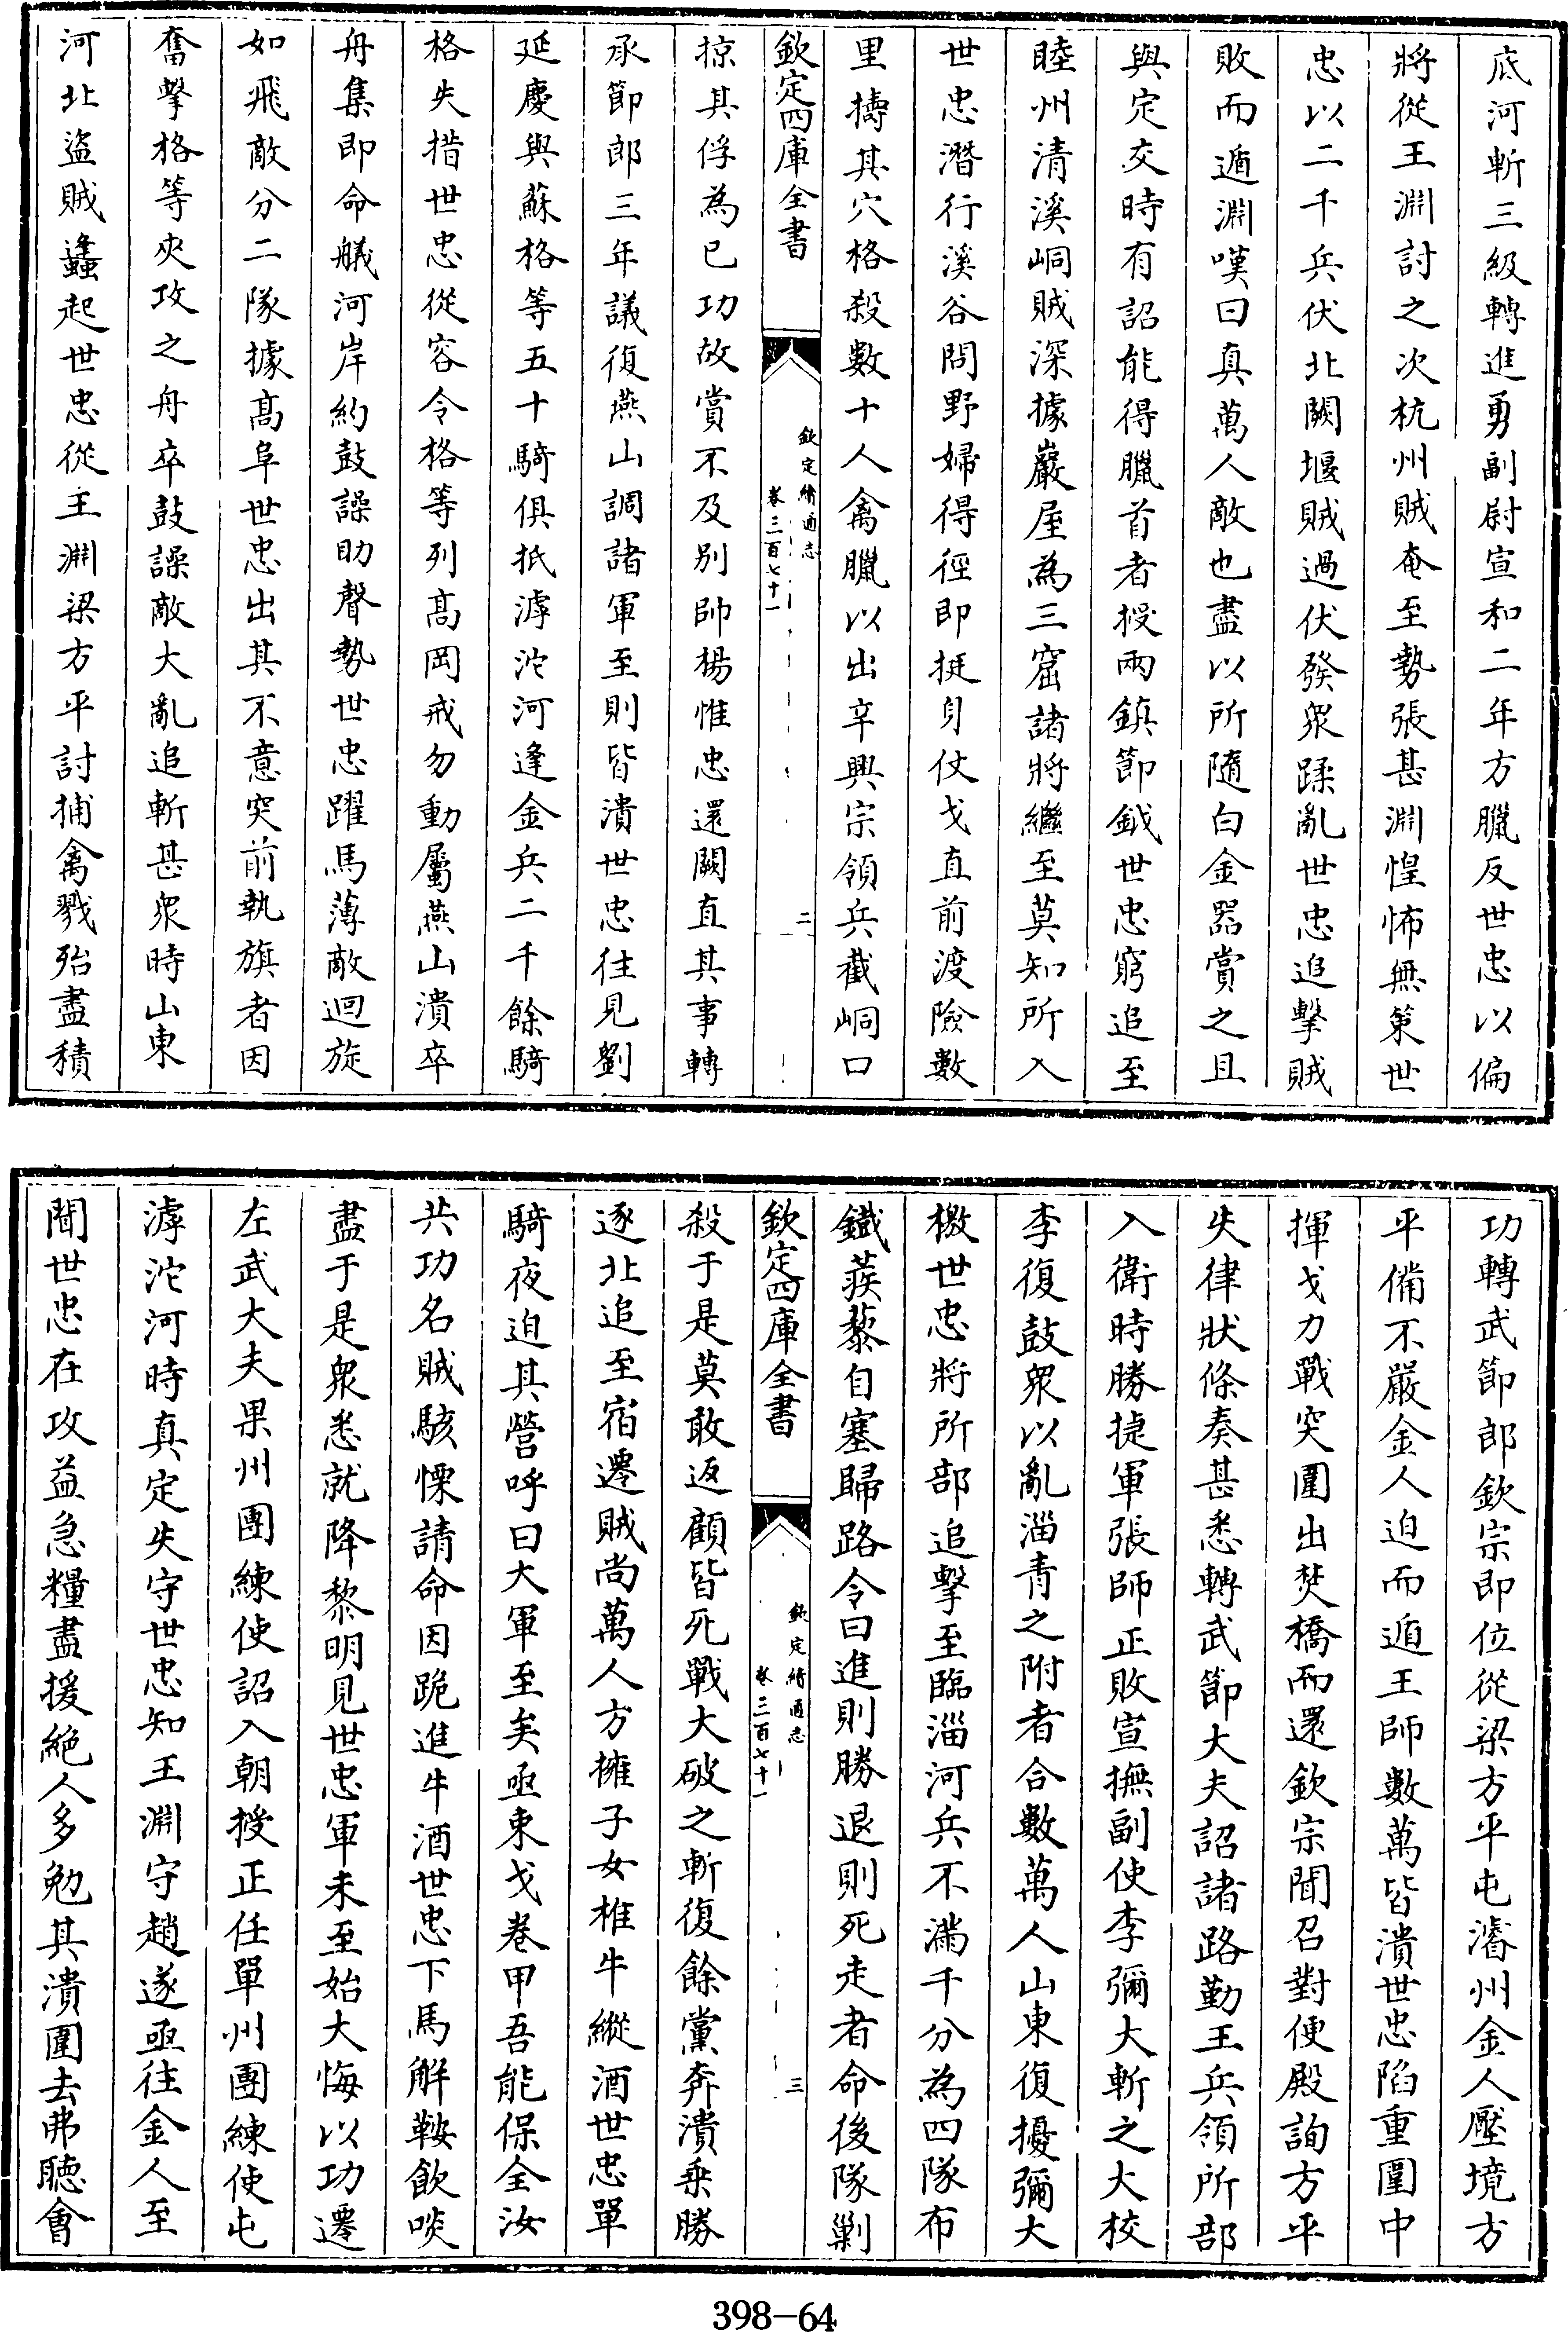 底河斬三級轉進勇副尉宣和二年方臘反世忠以偏
將從王淵討之次杭州賊奄至勢張甚淵惶怖無策世
忠以二千兵伏北闕堰賊過伏發衆蹂亂世忠追擊賊
敗而遁淵嘆曰真萬人敵也盡以所隨白金器賞之且
與定交時有詔能得臘首者授兩鎮節鉞世忠窮追至
睦州清溪峒賊深據巖屋為三窟諸將繼至莫知所入
世忠潛行溪谷問野婦得徑即挺身仗戈直前渡險數
里擣其穴格殺數十人禽臘以出辛興宗領兵截峒口
欽定四庫全書
欽定續通志
卷三百七十一
二
掠其俘為已功故賞不及别帥楊惟忠還闕直其事轉
承節郎三年議復燕山調諸軍至則皆潰世忠往見劉
延慶與蘇格等五十騎俱抵滹沱河逢金兵二千餘騎
格失措世忠從容令格等列髙岡戒勿動屬燕山潰卒
舟集即命艤河岸約鼓譟助聲勢世忠躍馬薄敵迴旋
如飛敵分二隊據髙阜世忠出其不意突前執旗者因
奮擊格等夾攻之舟卒鼓譟敵大亂追斬甚衆時山東
河北盜賊蠭起世忠從王淵梁方平討捕禽戮殆盡積
功轉武節郎欽宗即位從梁方平屯濬州金人壓境方
平備不嚴金人迫而遁王師數萬皆潰世忠陷重圍中
揮戈力戰突圍出焚橋而還欽宗聞召對便殿詢方平
失律狀條奏甚悉轉武節大夫詔諸路勤王兵領所部
入衛時勝捷軍張師正敗宣撫副使李彌大斬之大校
李復鼓衆以亂淄青之附者合數萬人山東復擾彌大
檄世忠將所部追擊至臨淄河兵不滿千分為四隊布
鐵蒺藜自塞歸路令曰進則勝退則死走者命後隊剿
欽定四庫全書
欽定續通志
卷三百七十一
三
殺于是莫敢返顧皆死戰大破之斬復餘黨奔潰乗勝
逐北追至宿遷賊尚萬人方擁子女椎牛縱酒世忠單
騎夜迫其營呼曰大軍至矣亟束戈卷甲吾能保全汝
共功名賊駭慄請命因跪進牛酒世忠下馬解鞍飲啖
盡于是衆悉就降黎明見世忠軍未至始大悔以功遷
左武大夫果州團練使詔入朝授正任單州團練使屯
滹沱河時真定失守世忠知王淵守趙遂亟往金人至
聞世忠在攻益急糧盡援絶人多勉其潰圍去弗聽會
398-64